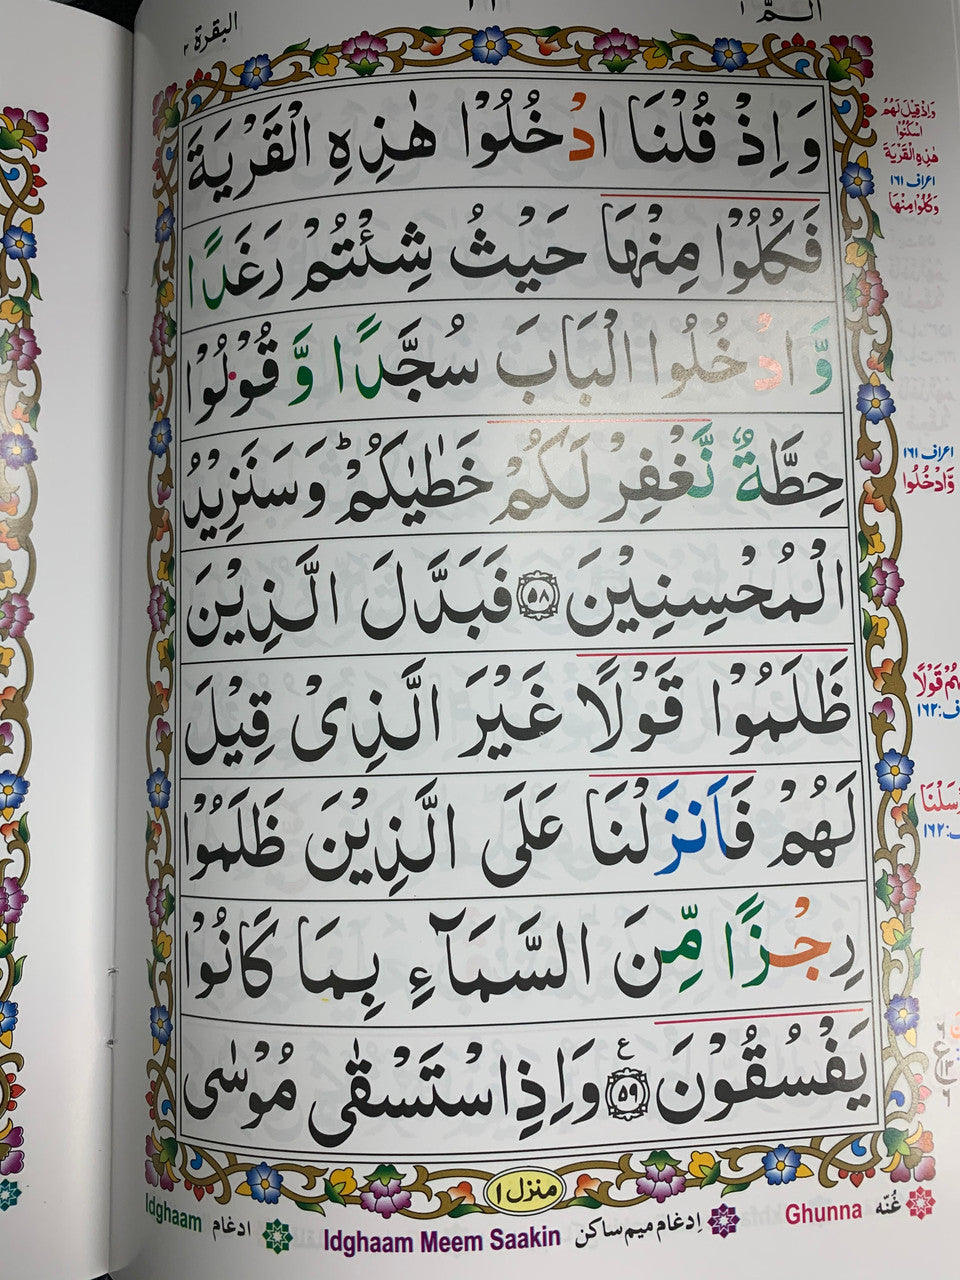 البقرة ٢
الٓمّٓ ١
وَاِذْ قُلْنَا ادْخُلُوْا هٰذِهِ الْقَرْيَةَ
فَكُلُوْا مِنْهَا حَيْثُ شِئْتُمْ رَغَدًا
وَّادْخُلُوا الْبَابَ سُجَّدًا وَّ قُوْلُوْا
حِطَّةٌ نَّغْفِرْ لَكُمْ خَطٰيٰكُمْ ؕ وَ سَنَزِيْدُ
الْمُحْسِنِيْنَ ﴿٥٨﴾ فَبَدَّلَ الَّذِيْنَ
ظَلَمُوْا قَوْلًا غَيْرَ الَّذِىْ قِيْلَ
لَهُمْ فَاَنزَلْنَا عَلَى الَّذِيْنَ ظَلَمُوْا
رِجْزًا مِّنَ السَّمَآءِ بِمَا كَانُوْا
يَفْسُقُوْنَ ﴿٥٩﴾ ع وَاِذِ اسْتَسْقٰى مُوْسٰى
وَاِذْ قِيْلَ لَهُمُ
اسْكُنُوْا
هٰذِهِ الْقَرْيَةَ
اعراف ١٦١
وَكُلُوْا مِنْهَا
اعراف ١٦١
وَادْخُلُوا
منزل ١
غُنّه Ghunna
اِدغام میم ساکن Idghaam Meem Saakin
ادغام Idghaam